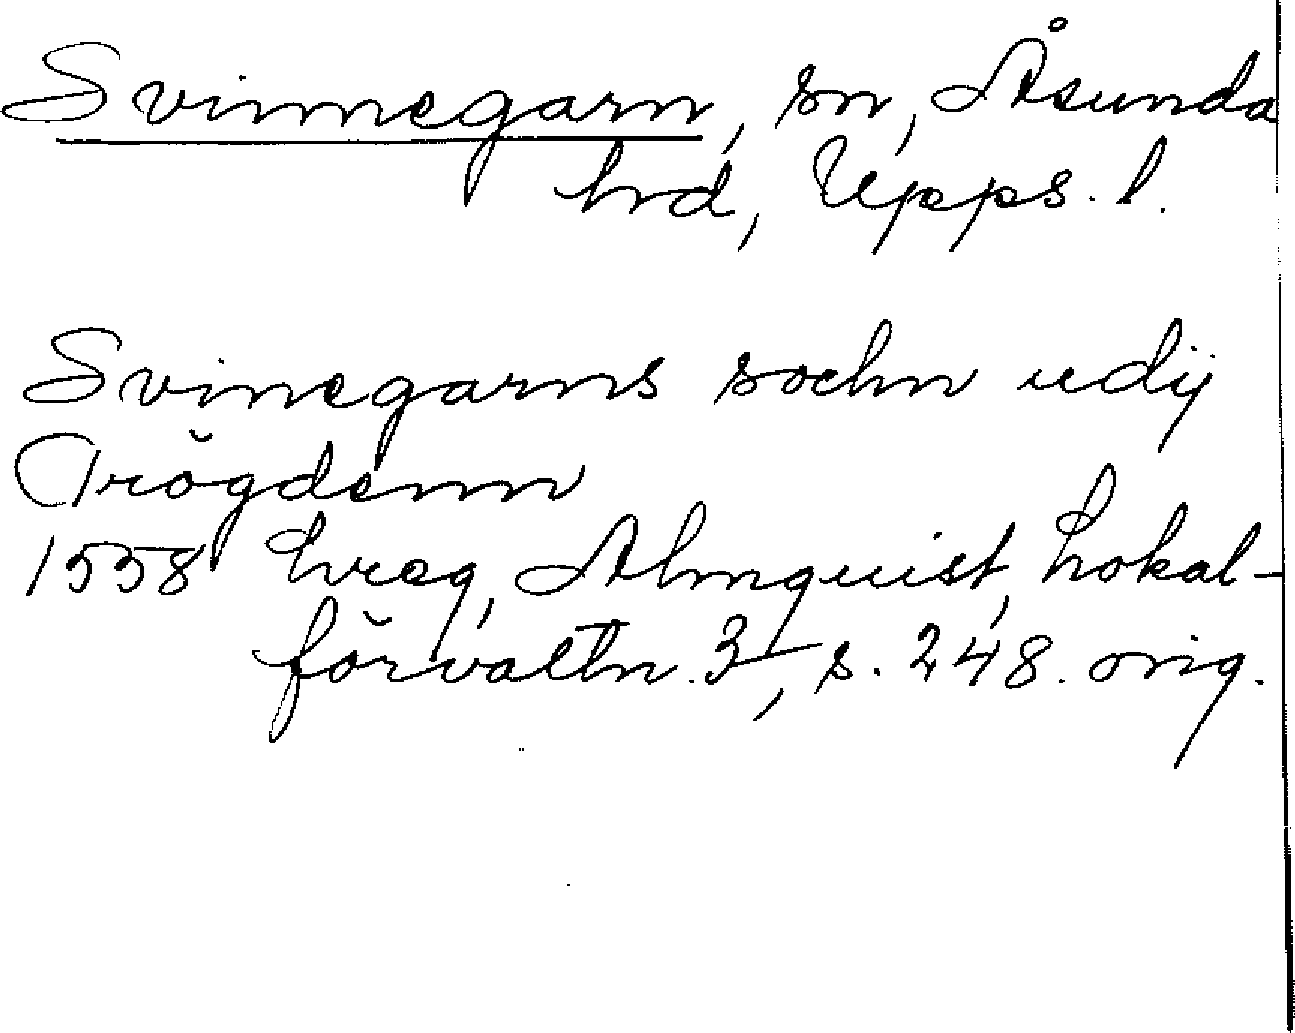 Svinnegarn, sn, Åsunda
hrd, Upps. l.
Svinegarns sochn udij
Trögdenn
1558 hreg, Almquist, Lokal-
förvaltn. 3, s. 248. orig.